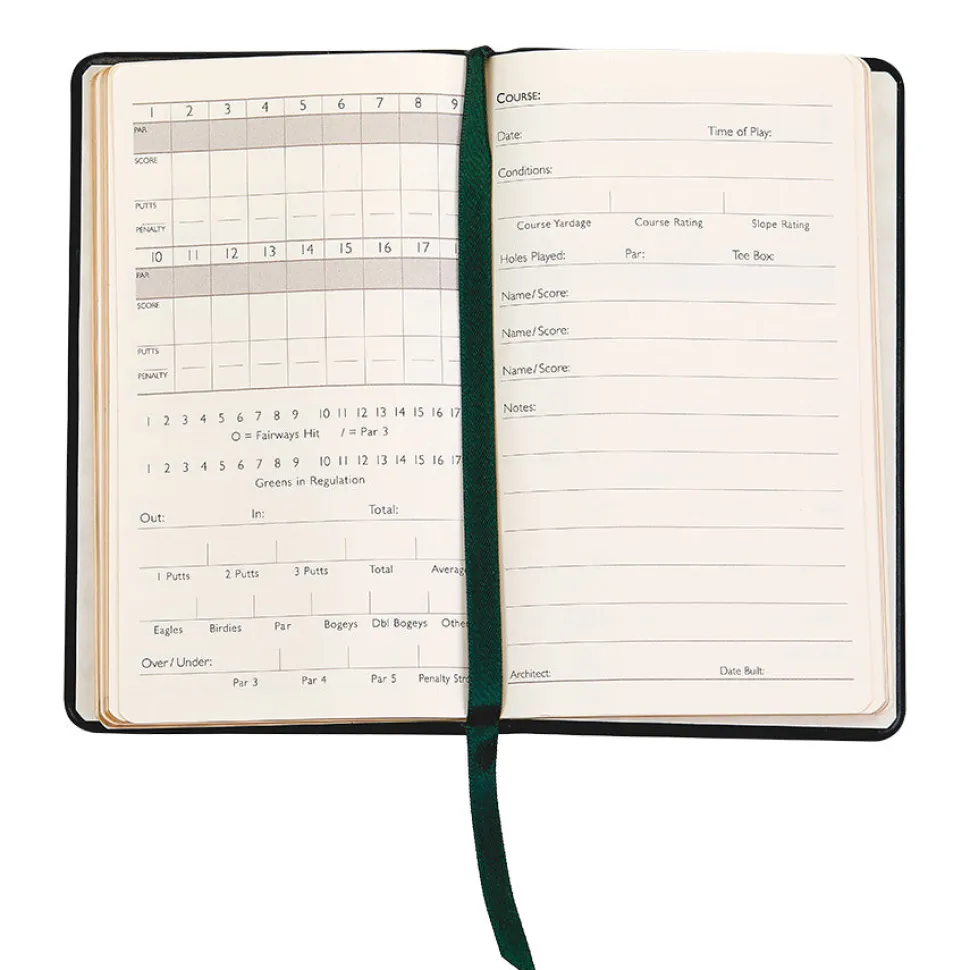 1 2 3 4 5 6 7 8 9
PAR
SCORE
PUTTS
PENALTY
10 11 12 13 14 15 16 17
PAR
SCORE
PUTTS
PENALTY
1 2 3 4 5 6 7 8 9 10 11 12 13 14 15 16 17
O = Fairways Hit / = Par 3
1 2 3 4 5 6 7 8 9 10 11 12 13 14 15 16 17
Greens in Regulation
Out: In: Total:
1 Putts 2 Putts 3 Putts Total Average
Eagles Birdies Par Bogeys Dbl Bogeys Other
Over/Under:
Par 3 Par 4 Par 5 Penalty
COURSE:
Date: Time of Play:
Conditions:
Course Yardage Course Rating Slope Rating
Holes Played: Par: Tee Box:
Name/Score:
Name/Score:
Name/Score:
Notes:
Architect: Date Built: